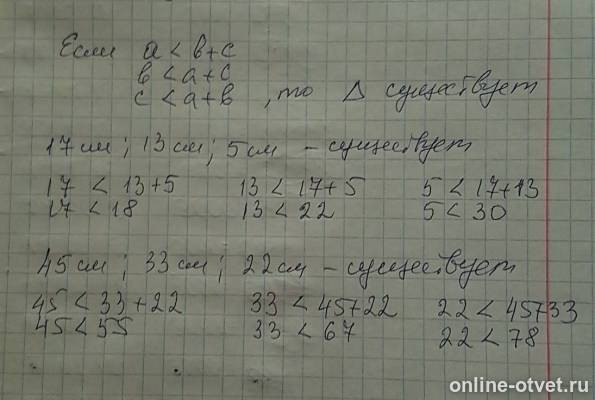 Если a < в+c
в < a+c
c < a+в , то Δ существует
17 см ; 13 см ; 5 см – существует
17 < 13+5 13 < 17+5 5 < 17+13
17 < 18 13 < 22 5 < 30
45 см ; 33 см ; 22 см – существует
45 < 33+22 33 < 45+22 22 < 45+33
45 < 55 33 < 67 22 < 78
online-otvet.ru